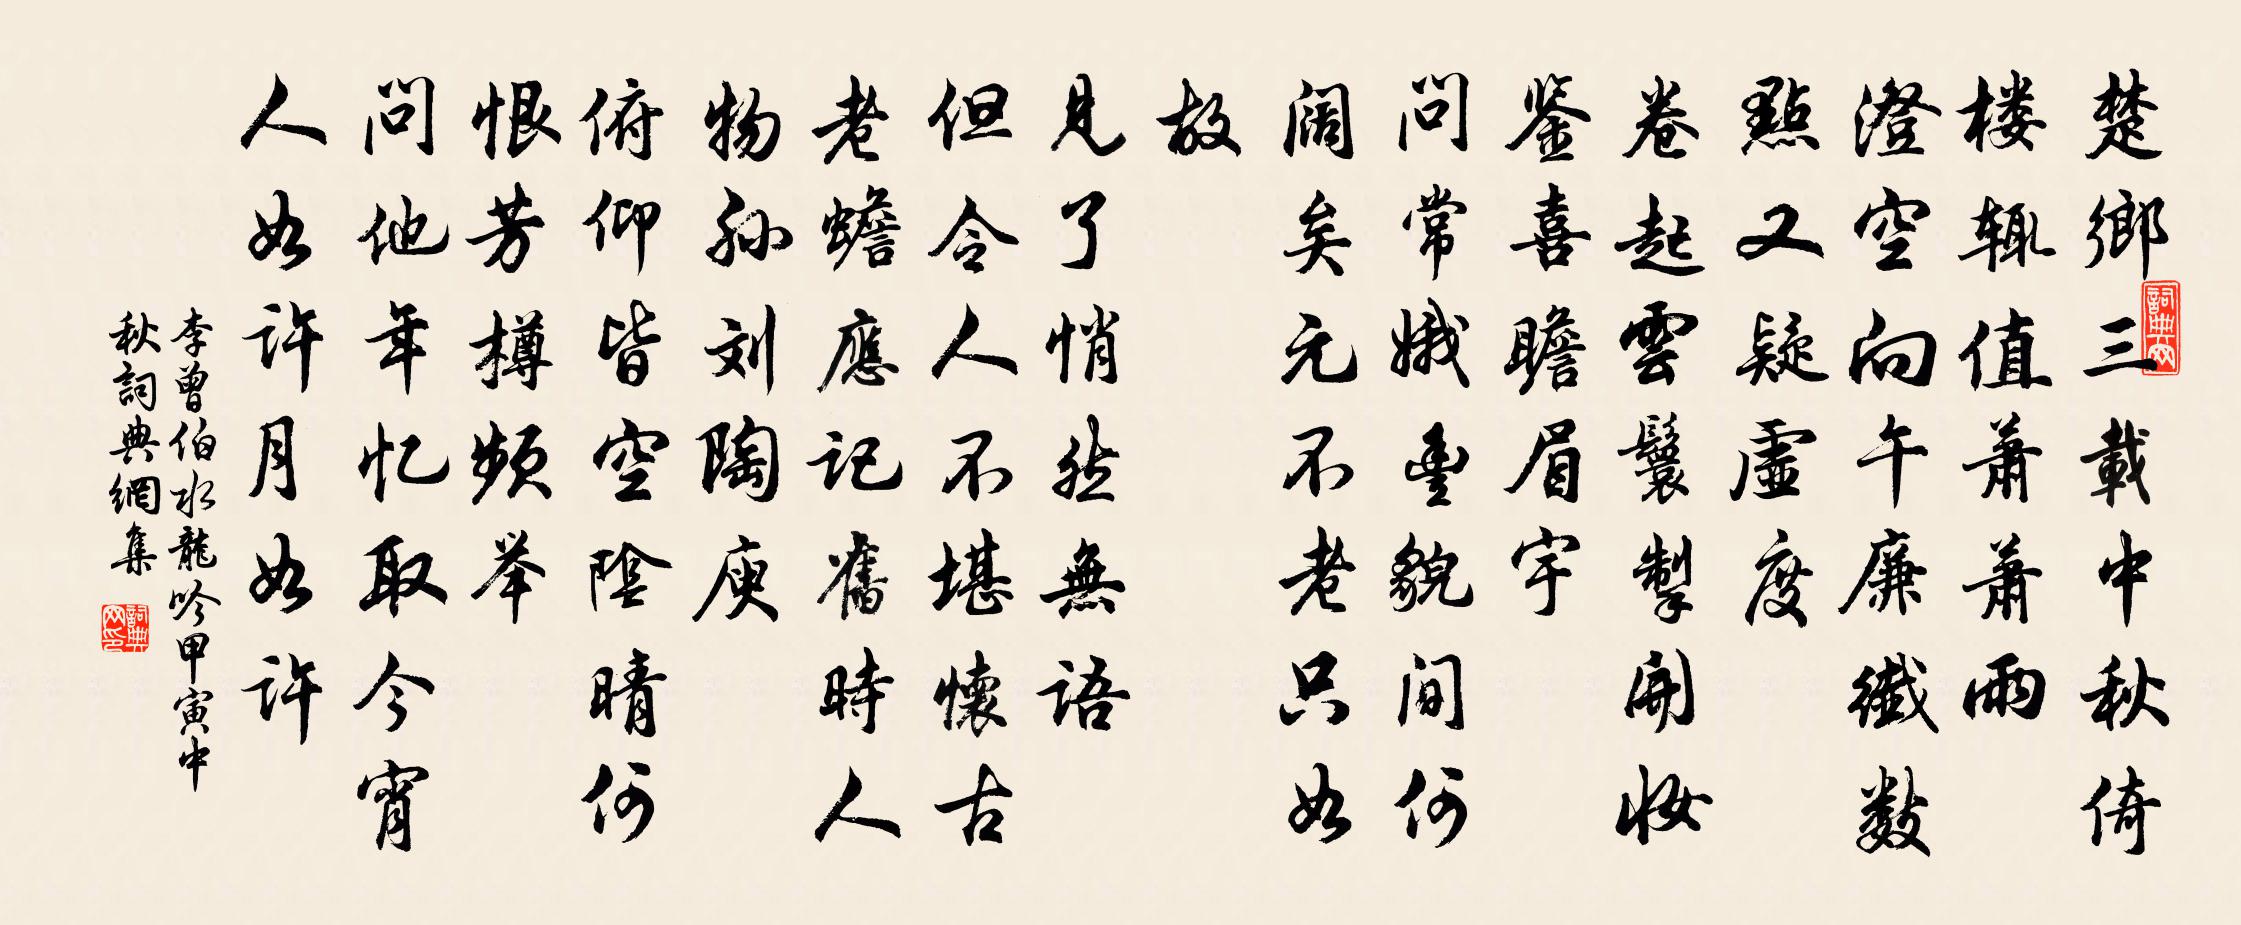 楚鄉三載中秋倚
楼辄值蕭蕭雨
澄空向午廉纖数
點又疑虛度
卷起雲鬟掣開妝
鉴喜瞻眉宇
问常娥豐貌间何
阔矣元不老只如
故
見了悄然無语
但令人不堪懷古
老蟾應记舊時人
物孙刘陶庾
俯仰皆空陰晴何
恨芳樽频举
问他年忆取今宵
人如许月如许
李曾伯水龍吟甲寅中
秋詞典網集
詞典网
詞典网印